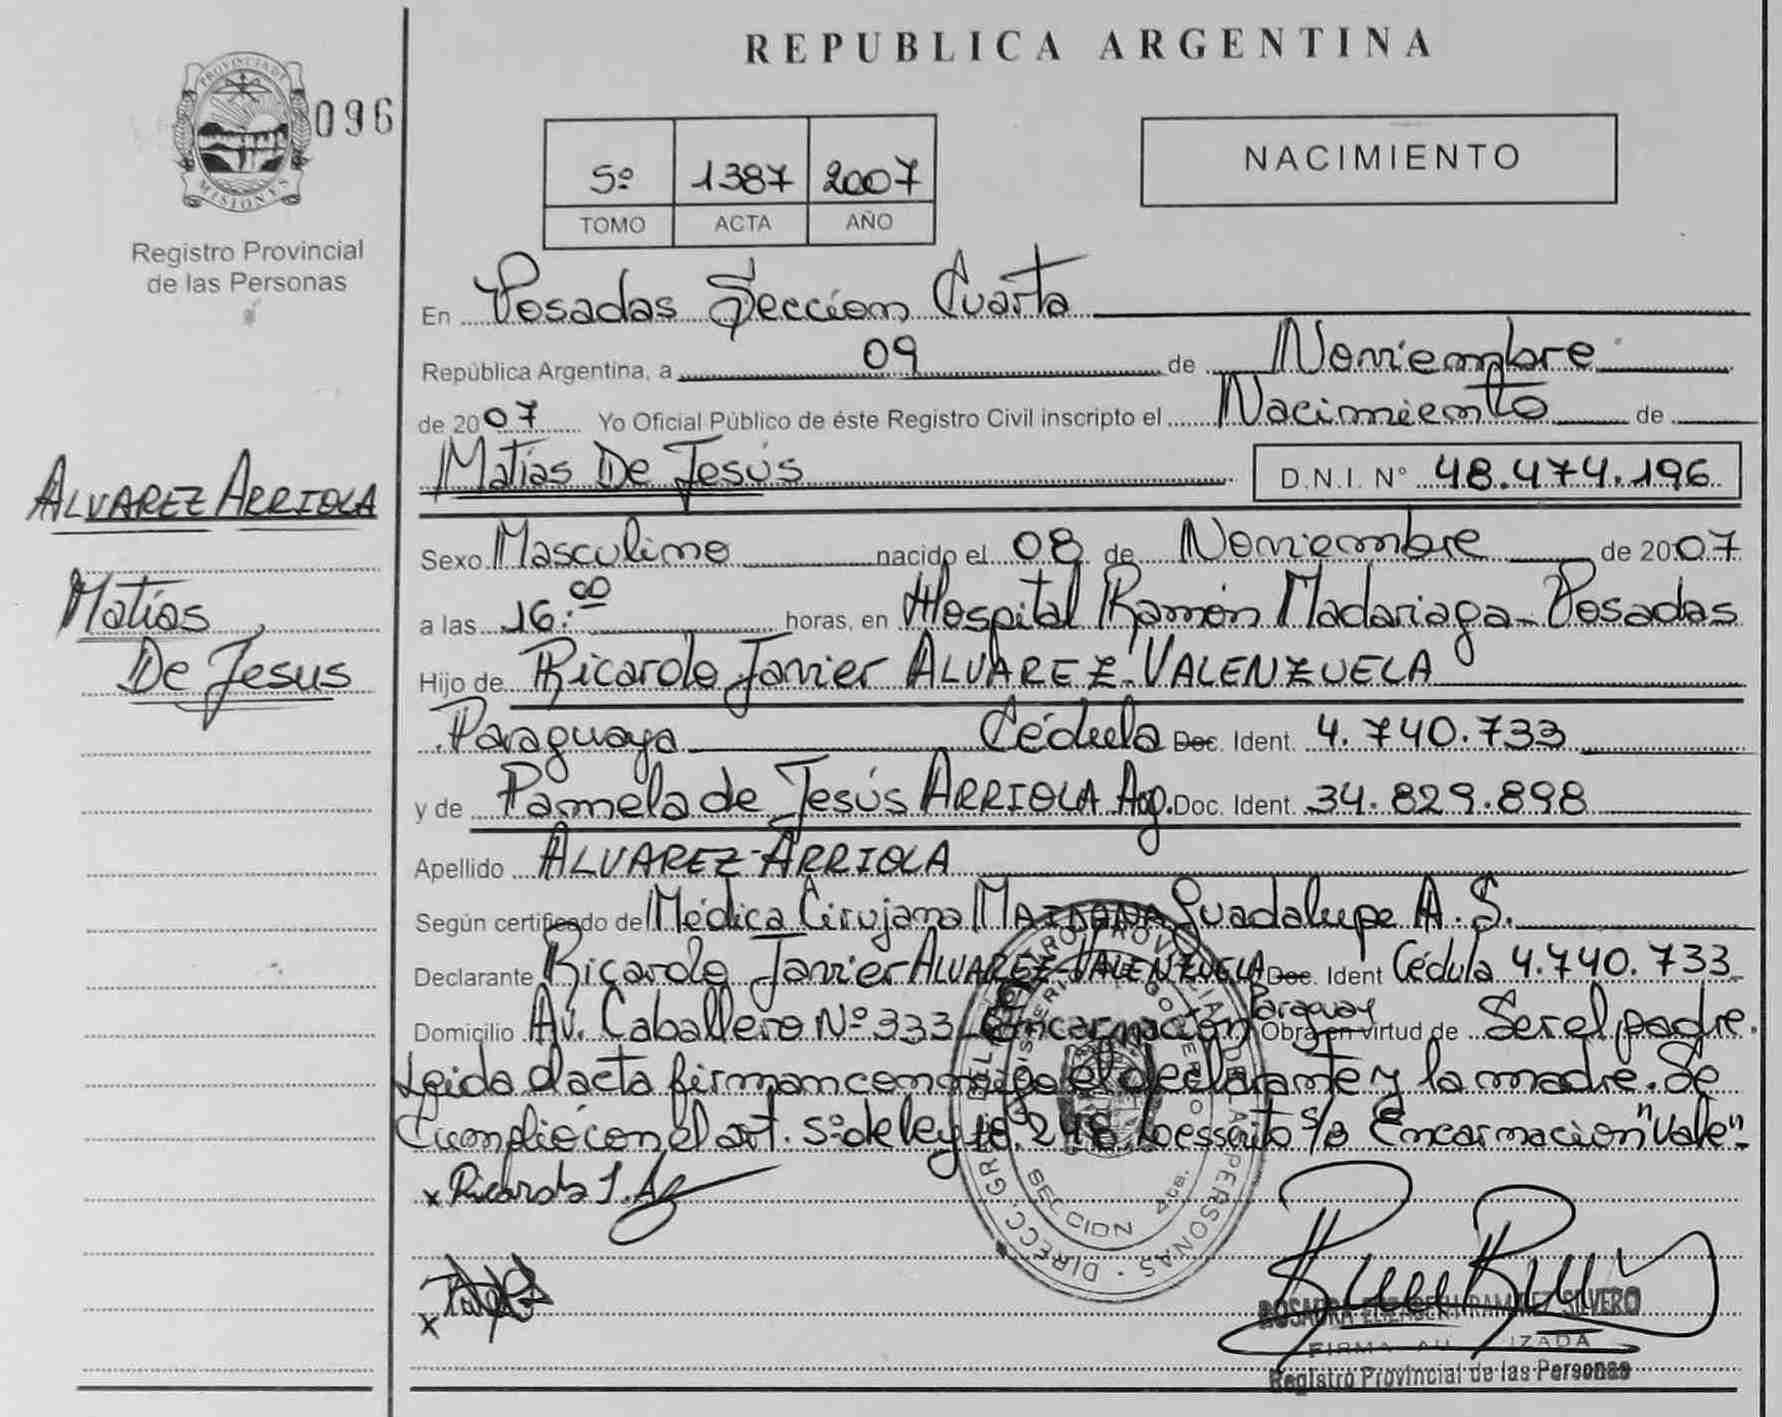 REPUBLICA ARGENTINA
PROVINCIA DE
MISIONES
096
Registro Provincial
de las Personas
5º 1387 2007
TOMO ACTA AÑO
NACIMIENTO
En Posadas Sección Cuarta
República Argentina, a 09 de Noviembre
de 2007 Yo Oficial Público de éste Registro Civil inscripto el Nacimiento de
Matías De Jesús D.N.I. N° 48.474.196
ALVAREZ ARRIOLA
Matías
De Jesus
Sexo Masculino nacido el 08 de Noviembre de 2007
a las 16:00 horas, en Hospital Ramón Madariaga - Posadas
Hijo de Ricardo Javier ALVAREZ-VALENZUELA
Paraguaya Cédula Doc. Ident. 4.740.733
y de Pamela de Jesús ARRIOLA Arg. Doc. Ident. 34.829.898
Apellido ALVAREZ-ARRIOLA
Según certificado de Médica Cirujana MAIDANA Guadalupe A. S.
Declarante Ricardo Javier ALVAREZ-VALENZUELA Doc. Ident Cédula 4.740.733
Domicilio Av. Caballero Nº 333 Encarnación Paraguay Obra en virtud de Ser el padre.
Leida el acta firman conmigo el declarante y la madre. Se
Cumplió con el art. 5º de ley 18.248. Lo escrito s/b Encarnacion "Vale"-
x Ricardo J.
x
DIRECC. GRAL. DEL REGISTRO PROVINCIAL DE LAS PERSONAS
SECCION 4ta.
ROSAURA ELIZABETH RAMIREZ SILVERO
FIRMA AUTORIZADA
Registro Provincial de las Personas